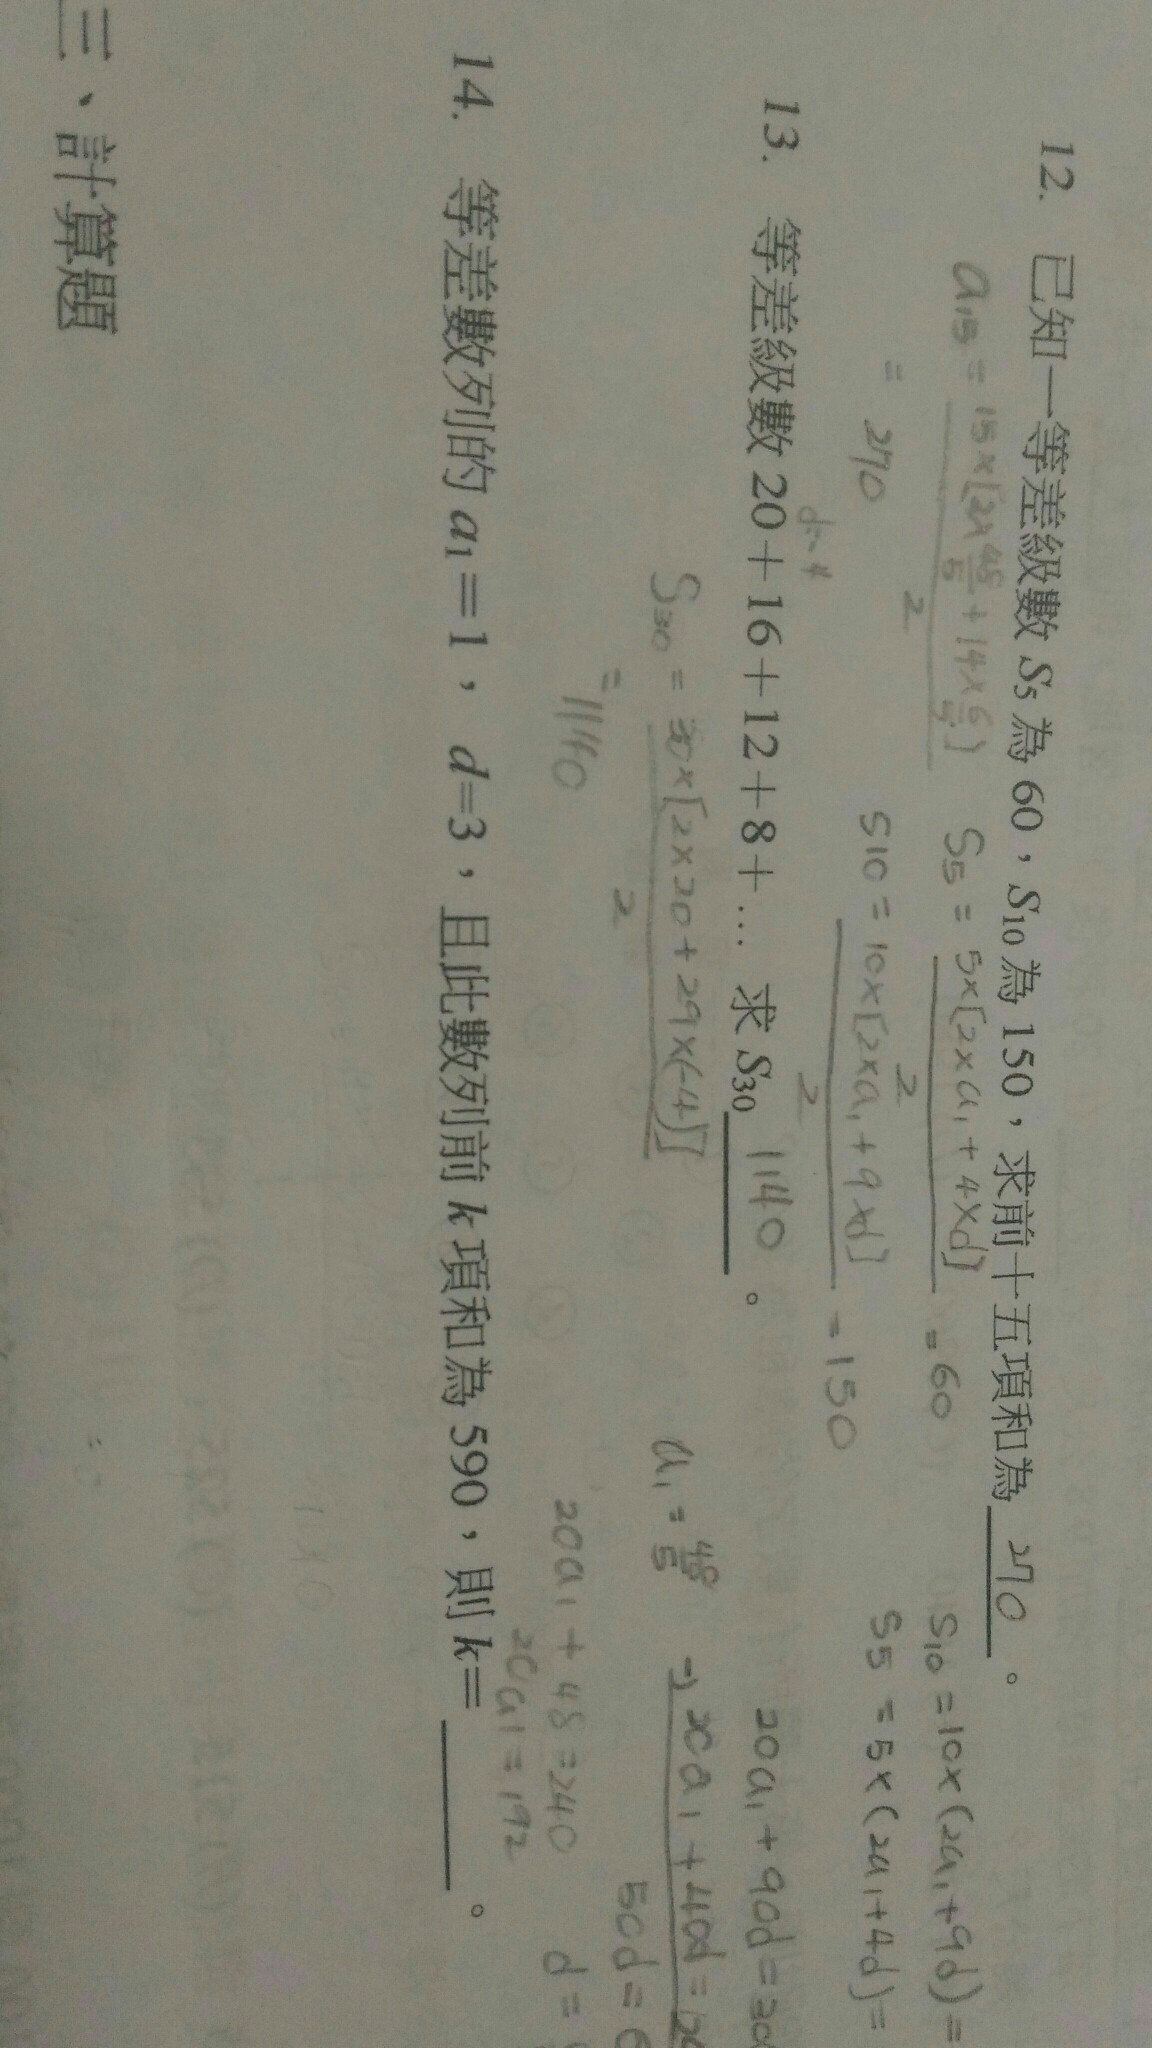 12. 已知一等差級數 S5 為 60，S10 為 150，求前十五項和為 270 。
a15 = 15×[2×48/5 + 14×6/5] / 2
= 270
S5 = 5×[2×a1+4×d] / 2 = 60
S10 = 10×[2×a1+9×d] / 2 = 150
S10 = 10×(2a1+9d) =
S5 = 5×(2a1+4d) =
20a1+90d=30
-) 20a1+40d=24
50d=6
d=
20a1+48=240
20a1=192
a1=48/5
13. 等差級數 20＋16＋12＋8＋… 求 S30 1140 。
d=-4
S30 = 30×[2×20+29×(-4)] / 2
= 1140
14. 等差數列的 a1＝1，d=3，且此數列前 k 項和為 590，則 k＝ 。
三、計算題